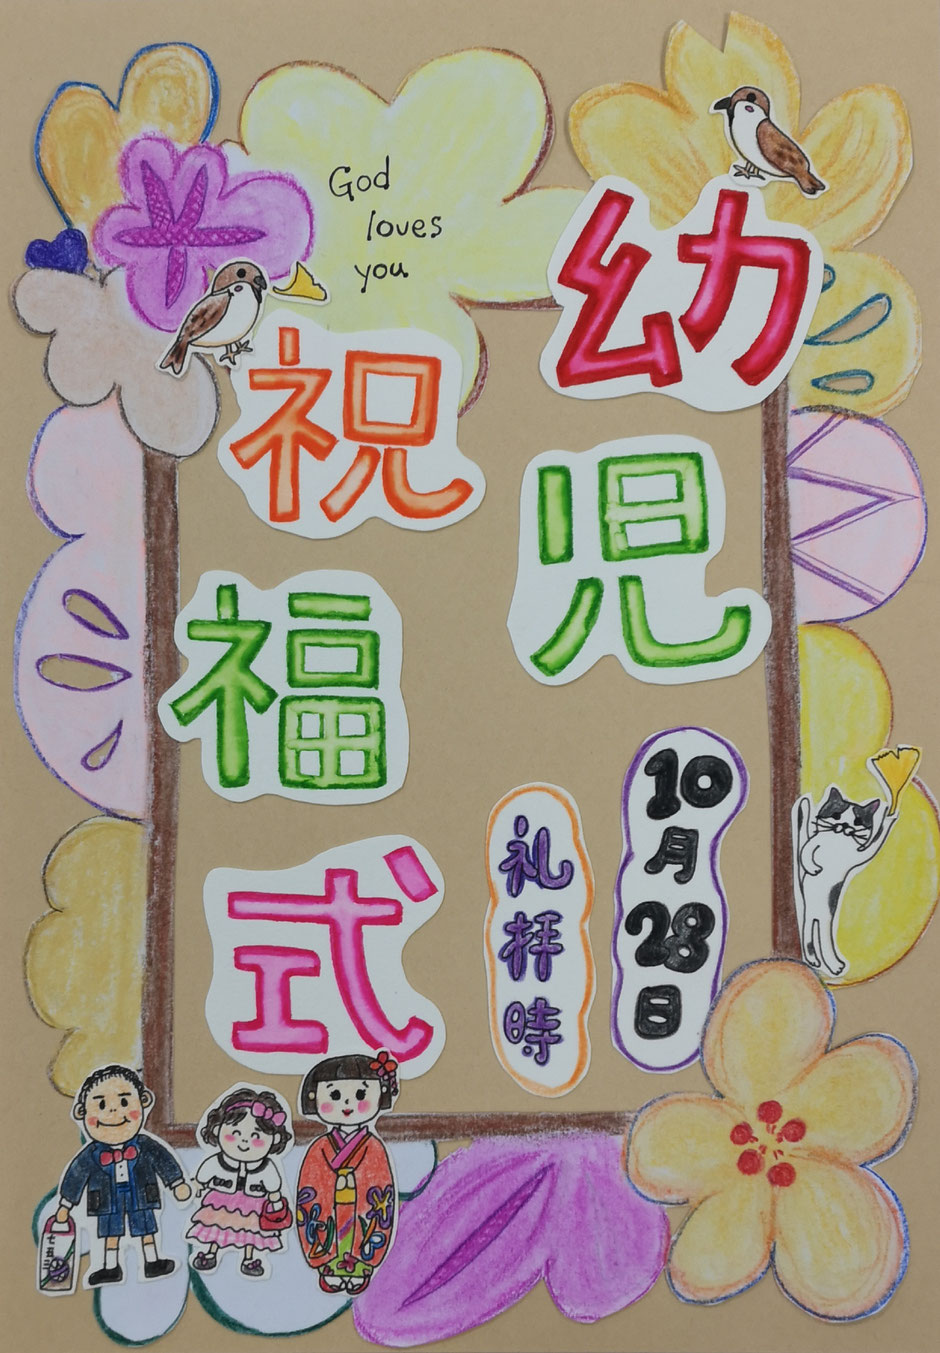 God
loves
you
幼児
祝福式
10月28日
礼拝時